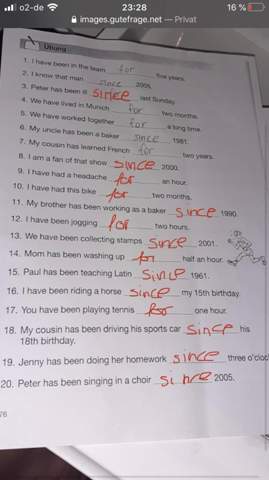 o2-de 23:28 16 %
images.gutefrage.net — Privat
Übung
1. I have been in the team for five years.
2. I know that man since 2005.
3. Peter has been ill since last Sunday.
4. We have lived in Munich for two months.
5. We have worked together for a long time.
6. My uncle has been a baker since 1981.
7. My cousin has learned French for two years.
8. I am a fan of that show since 2000.
9. I have had a headache for an hour.
10. I have had this bike for two months.
11. My brother has been working as a baker since 1990.
12. I have been jogging for two hours.
13. We have been collecting stamps since 2001.
14. Mom has been washing up for half an hour.
15. Paul has been teaching Latin since 1961.
16. I have been riding a horse since my 15th birthday.
17. You have been playing tennis for one hour.
18. My cousin has been driving his sports car since his
18th birthday.
19. Jenny has been doing her homework since three o'cloc
20. Peter has been singing in a choir since 2005.
76